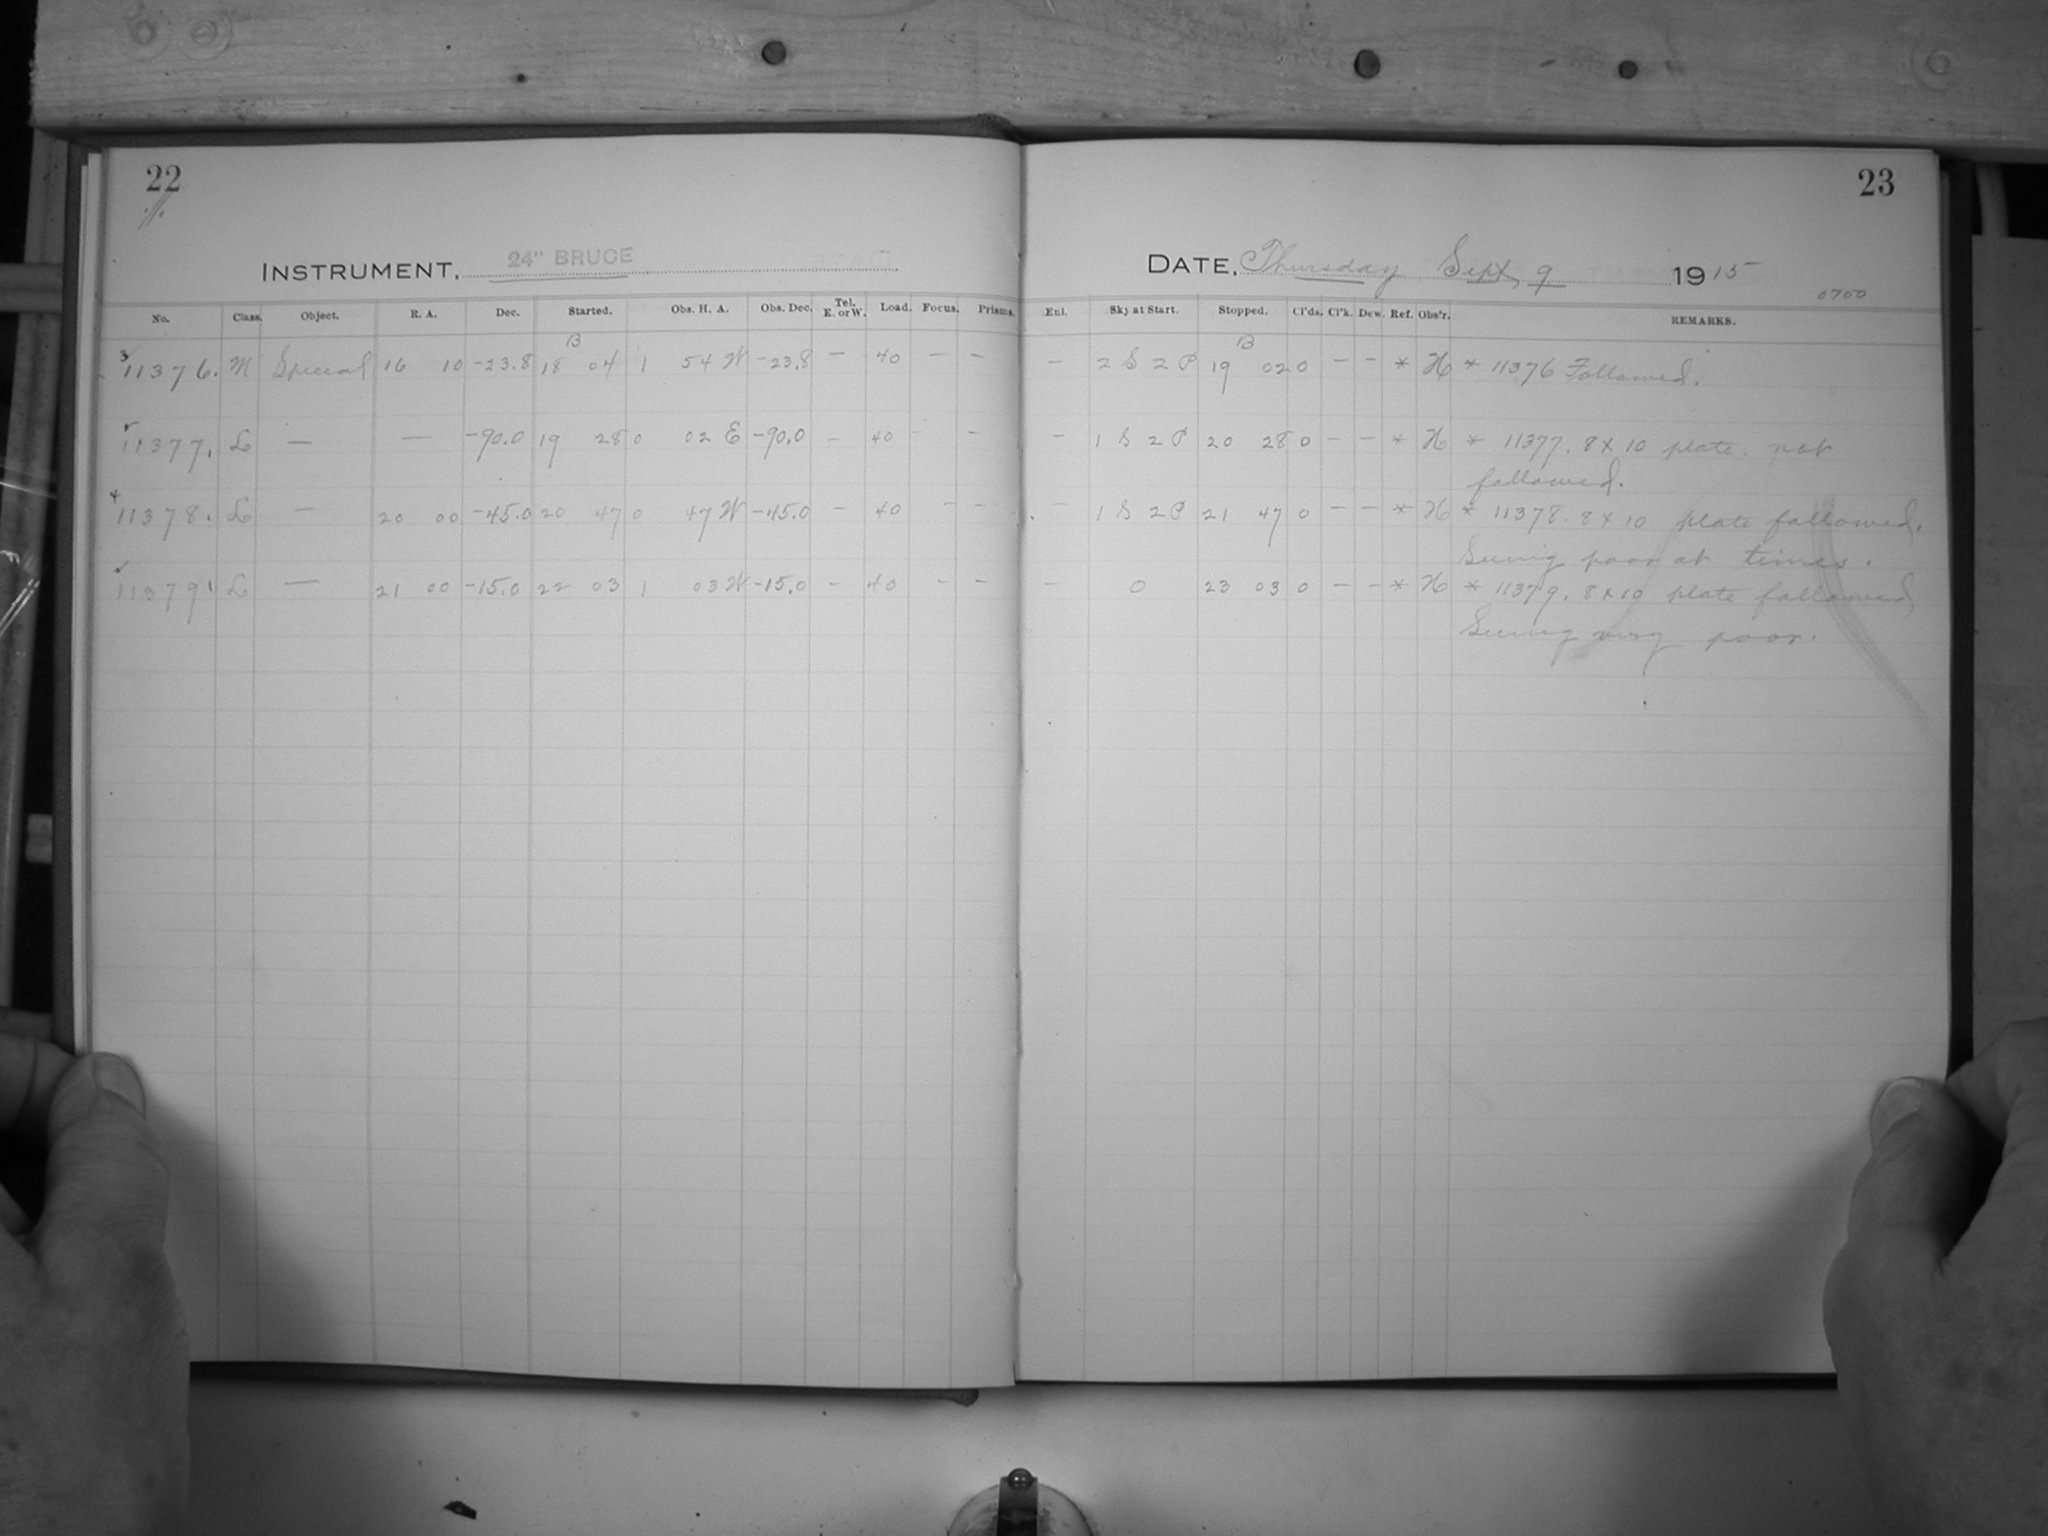 22
23
INSTRUMENT, 24" BRUCE
DATE, Thursday Sept, 9 1915
0700
No. Class. Object. R. A. Dec. Started. Obs. H. A. Obs. Dec. Tel. E. or W. Load. Focus. Prisms. Enl. Sky at Start. Stopped. Cl'ds. Cl'k. Dew. Ref. Obs'r. REMARKS.
B B
3 11376. M Special 16 10 -23.8 18 04 1 54 W -23.8 — 40 — — — 2 S 2 P 19 02 0 — — * H * 11376 Followed.
11377. L — — -90.0 19 28 0 02 E -90.0 — 40 - - — 1 S 2 P 20 28 0 — — * H * 11377. 8 X 10 plate. not
followed.
4 11378. L — 20 00 -45.0 20 47 0 47 W -45.0 — 40 - - — 1 S 2 P 21 47 0 — — * H * 11378. 8 X 10 plate followed.
Seeing poor at times.
11379. L — 21 00 -15.0 22 03 1 03 W -15.0 — 40 - - — 0 23 03 0 — — * H * 11379. 8 X 10 plate followed
Seeing very poor.